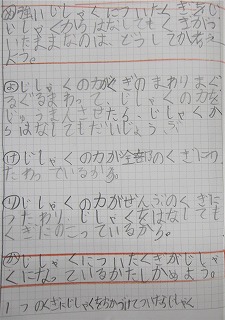 強いじしゃくについたくぎを
じしゃくからはなしても、くぎがつ
いたままなのは、どうしてかかんが
えよう。
よ じしゃくの力がくぎのまわりをぐ
るぐるまわって、じしゃくの力を
じゅうまんさせたら、じしゃくか
らはなしてもだいじょうぶ
け じしゃくの力が全部のくぎにつ
たわっているから。
り じしゃくの力がぜんぶのくぎに
つたわり、じしゃくをはなしても
くぎにのこっているから。
じしゃくについたくぎがじしゃ
くになっているかたしかめよう。
1つのくぎにじしゃくをちかづけてついたらじしゃく